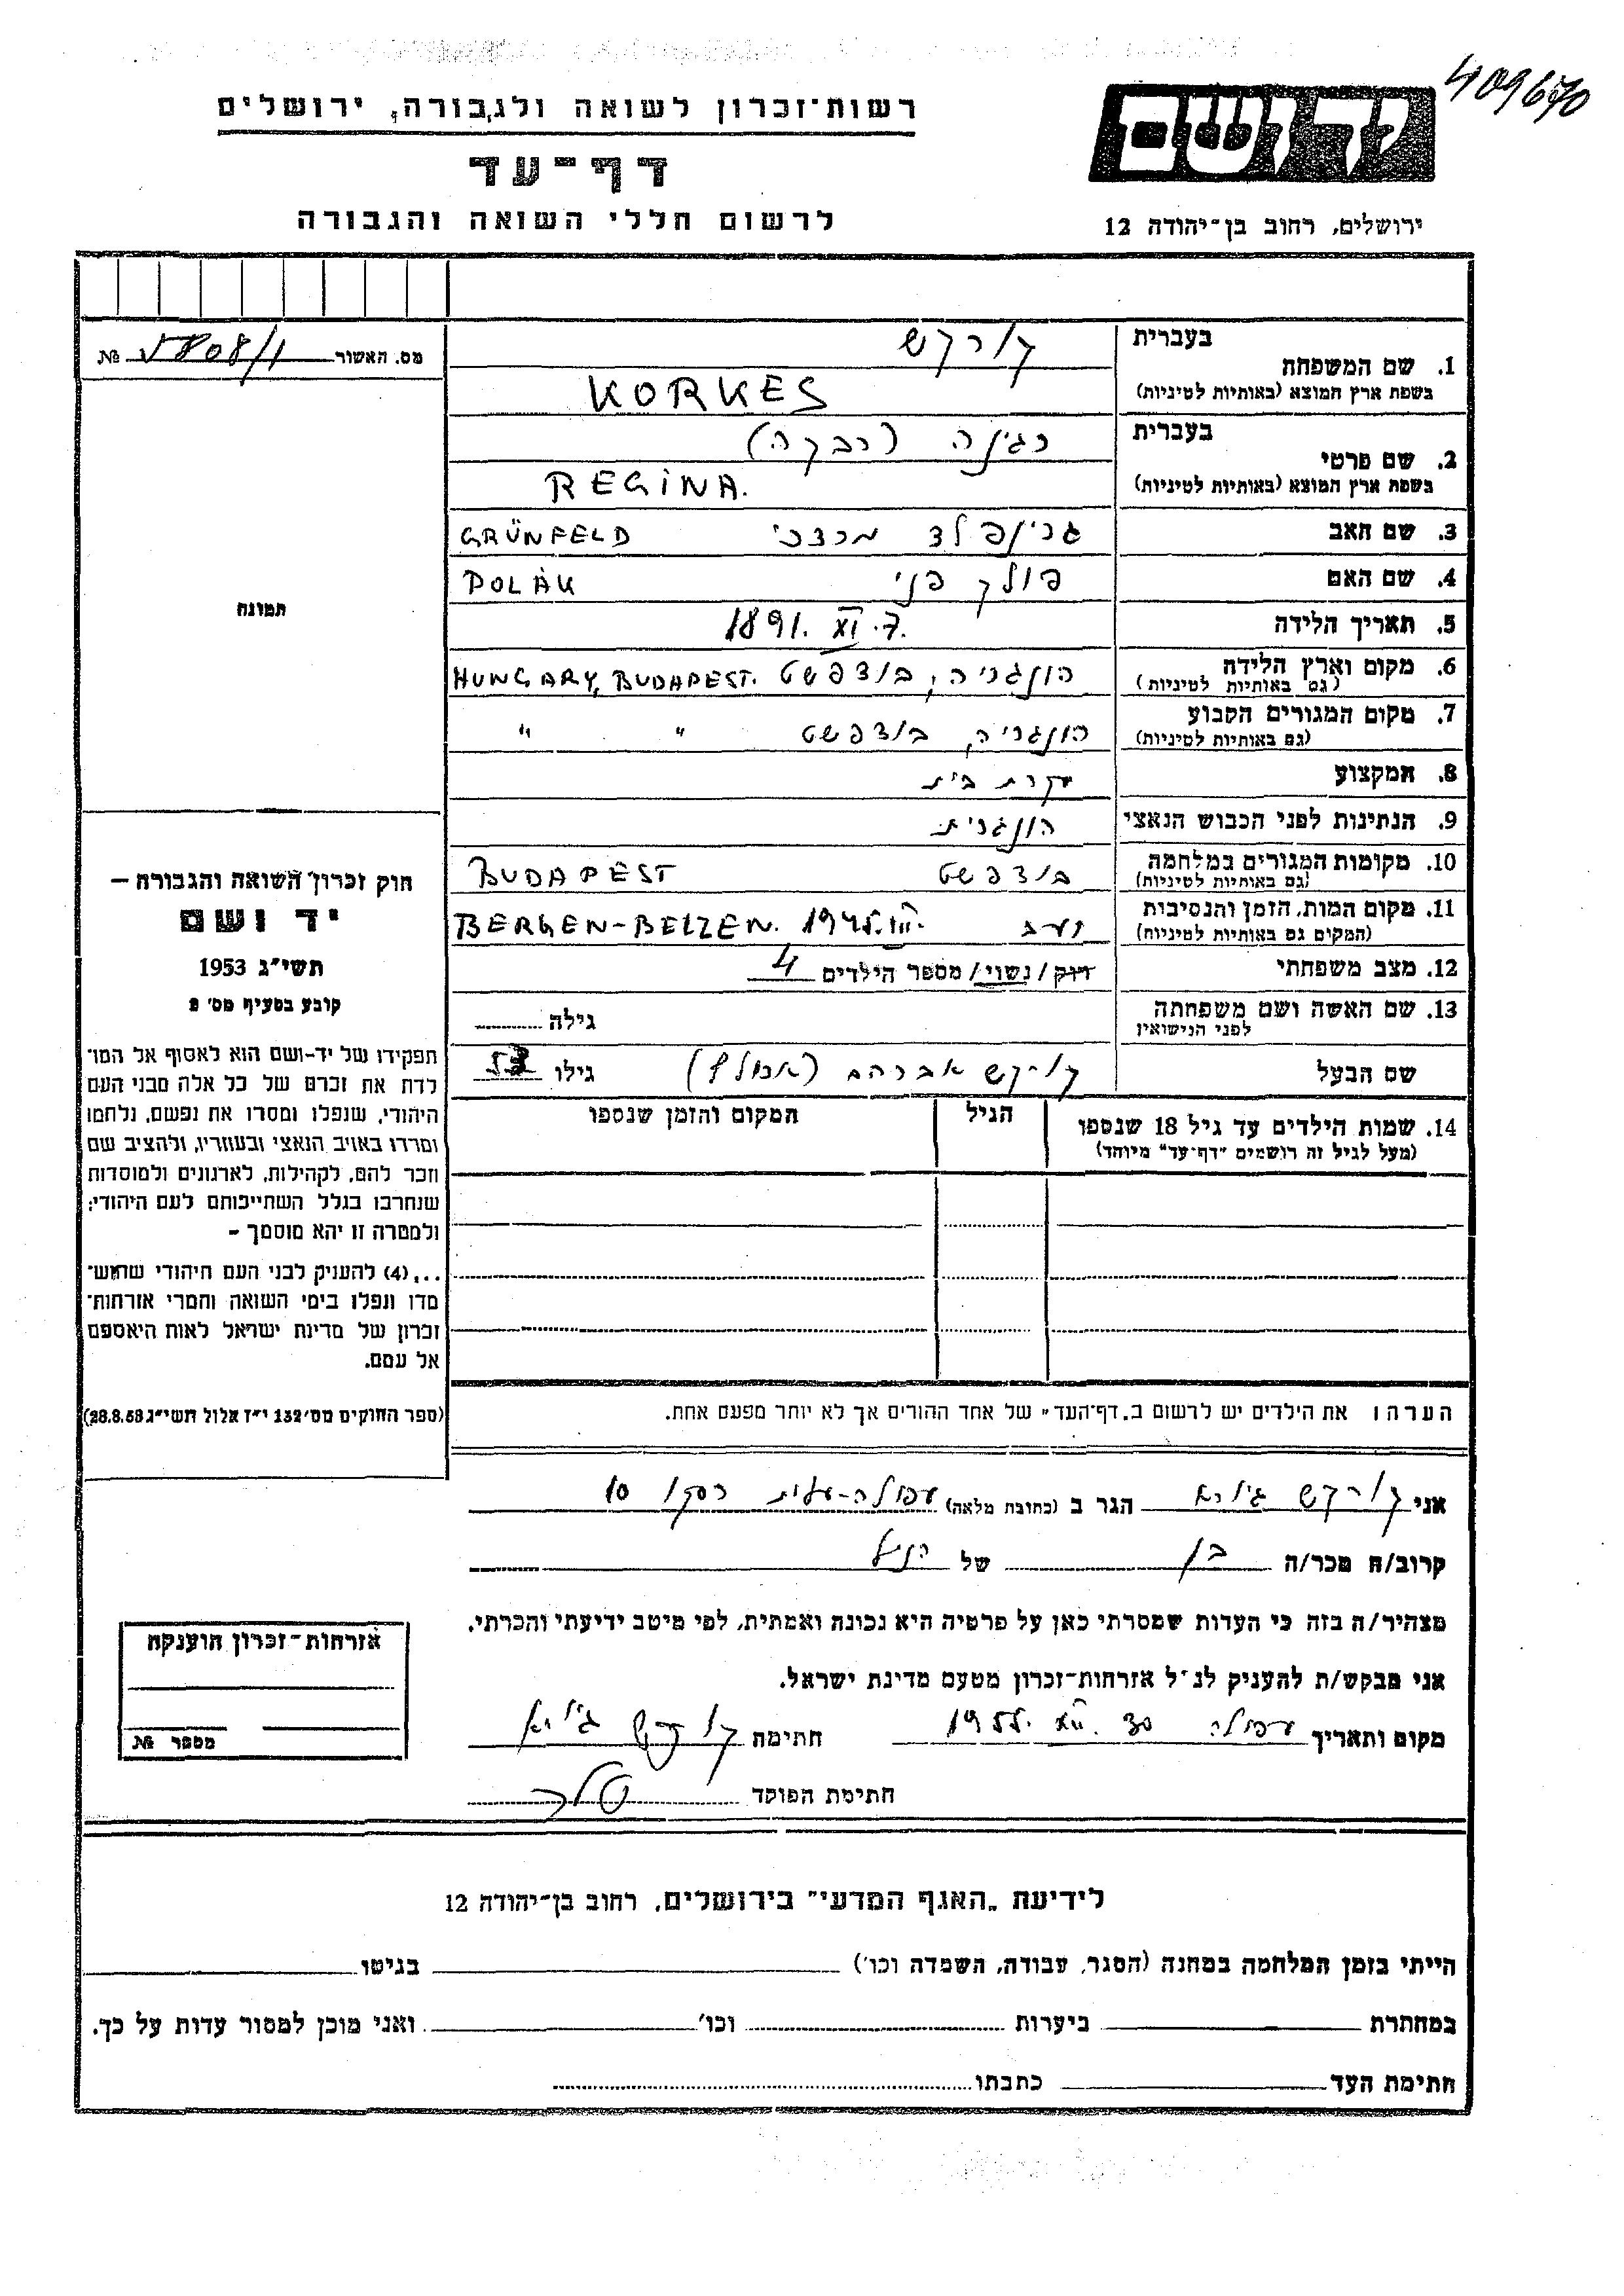 409670
רשות־זכרון לשואה ולגבורה, ירושלים
דף־עד
לרשום חללי השואה והגבורה
ירושלים, רחוב בן־יהודה 12
מס. האשור № 5808/1
תמונה
חוק זכרון השואה והגבורה —
יד ושם
תשי״ג 1953
קובע בסעיף מס׳ 2
תפקידו של יד-ושם הוא לאסוף אל המו־
לדת את זכרם של כל אלה מבני העם
היהודי, שנפלו ומסרו את נפשם, נלחמו
ומרדו באויב הנאצי ובעוזריו, ולהציב שם
וזכר להם, לקהילות, לארגונים ולמוסדות
שנחרבו בגלל השתייכותם לעם היהודי;
ולמטרה זו יהא מוסמך –
...(4) להעניק לבני העם היהודי שהוש־
מדו ונפלו בימי השואה והמרי אזרחות־
זכרון של מדינת ישראל לאות היאספם
אל עמם.
(ספר החוקים מס׳ 132 י״ז אלול תשי״ג 28.8.53)
בעברית קורקש
1. שם המשפחה
בשפת ארץ המוצא (באותיות לטיניות) KORKES
בעברית רגינה (רבקה)
2. שם פרטי
בשפת ארץ המוצא (באותיות לטיניות) REGINA.
3. שם האב גרינפלד מרצכי GRÜNFELD
4. שם האם פולק פני POLÁK
5. תאריך הלידה 1891. XI. 7.
6. מקום וארץ הלידה הונגריה, בודפשט HUNGARY, BUDAPEST.
(גם באותיות לטיניות)
7. מקום המגורים הקבוע הונגריה, בודפשט " "
(גם באותיות לטיניות)
8. המקצוע עקרת בית
9. הנתינות לפני הכבוש הנאצי הונגרית
10. מקומות המגורים במלחמה בודפשט BUDAPEST
(גם באותיות לטיניות)
11. מקום המות, הזמן והנסיבות רעב BERGEN-BELZEN. 1945. III.
(המקום גם באותיות לטיניות)
12. מצב משפחתי רוק / נשוי / מספר הילדים 4
13. שם האשה ושם משפחתה גילה
לפני הנישואין
שם הבעל קורקש אברהם (אדולף) גילו
14. שמות הילדים עד גיל 18 שנספו הגיל המקום והזמן שנספו
(מעל לגיל זה רושמים "דף־עד" מיוחד)
הערה: את הילדים יש לרשום ב„דף־העד" של אחד ההורים אך לא יותר מפעם אחת.
אני קורקש גיורא הגר ב (כתובת מלאה) עפולה-עלית רסקו 10
קרוב/ה מכר/ה בן של הנ״ל
מצהיר/ה בזה כי העדות שמסרתי כאן על פרטיה היא נכונה ואמתית, לפי מיטב ידיעתי והכרתי.
אני מבקש/ת להעניק לנ״ל אזרחות־זכרון מטעם מדינת ישראל.
מקום ותאריך עפולה 30. XII. 1955 חתימת קורקש גיורא
חתימת הפוקד
אזרחות־זכרון הוענקה
מספר №
לידיעת „האגף המדעי" בירושלים, רחוב בן־יהודה 12
הייתי בזמן המלחמה במחנה (הסגר, עבודה, השמדה וכו׳) בגיטו
במחתרת ביערות וכו׳ ואני מוכן למסור עדות על כך.
חתימת העד כתבתו